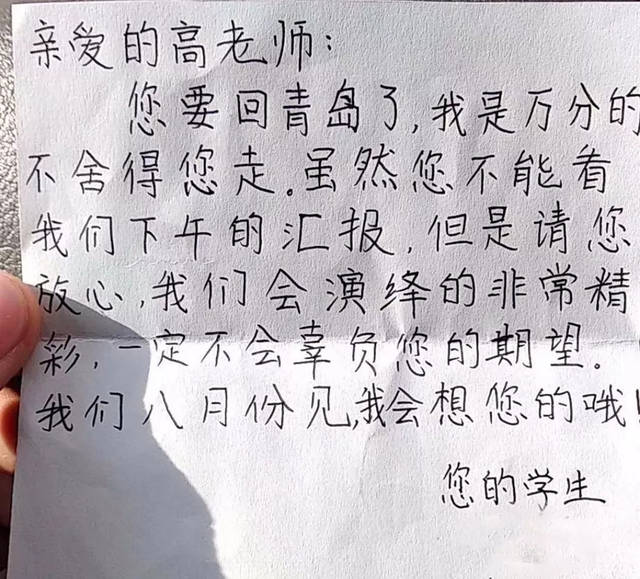 亲爱的高老师:
您要回青岛了,我是万分的
不舍得您走。虽然您不能看
我们下午的汇报,但是请您
放心,我们会演绎的非常精
彩,一定不会辜负您的期望。
我们八月份见,我会想您的哦!
您的学生